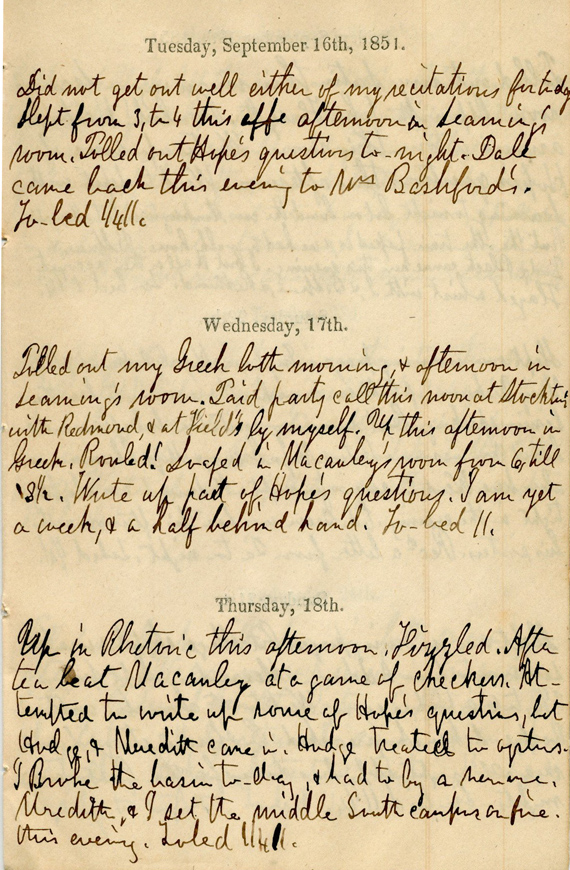 Tuesday, September 16th, 1851.
Did not get out well either of my recitations for to-day
Slept from 3, to 4 this afternoon in Leaming's
room. Polled out Hope's questions to-night. Dale
came back this evening to Mrs Bashford's.
To-bed 1/4 11.
Wednesday, 17th.
Polled out my Greek both morning, & afternoon in
Leaming's room. Paid party call this noon at Stockton's
with Redmond, & at Field's by myself. Up this afternoon in
Greek. Rouled! Loafed in Macauley's room from 6, till
8 1/2. Wrote up part of Hope's questions. I am yet
a week, & a half behind hand. To-bed 11.
Thursday, 18th.
Up in Rhetoric this afternoon. Fizzled. After
tea beat Macauley at a game of checkers. At-
tempted to write up some of Hope's questions, but
Hodge, & Meredith came in. Hodge treated to oysters.
I Broke the basin to-day, & had to by a new one.
Meredith, & I set the middle South campus on fire.
this evening. To bed 1/4 11.